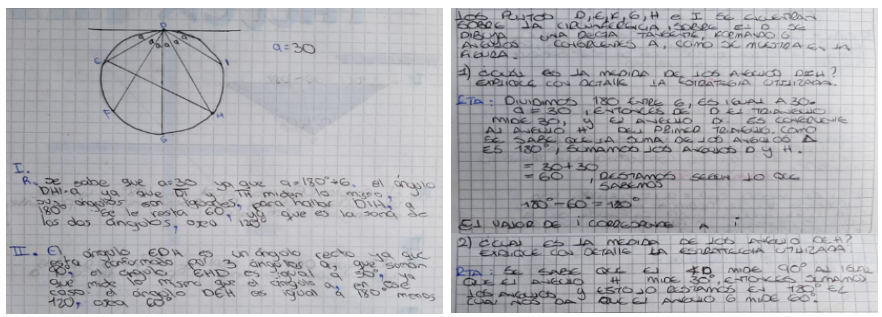 D
a a a a a a
a=30
C
I
F
H
G
I.
R. se sabe que a=30 ya que a=180°÷6. el ángulo
DHI=a ya que DI y IH miden lo mismo,
sus ángulos son iguales, para hallar DIH, a
180° se le resta 60°, ya que es la suma de
los dos ángulos, osea 120°
II. El ángulo EDH es un ángulo recto ya que
esta conformado por 3 ángulos a, que suman
90°, el ángulo EHD es igual a 30°, ya
que mide lo mismo que el ángulo a, en este
caso el ángulo DEH es igual a 180° menos
120, osea 60°
LOS PUNTOS D, E, F, G, H e I SE ENCUENTRAN
SOBRE LA CIRCUNFERENCIA, SOBRE EL D SE
DIBUJA UNA RECTA TANGENTE, FORMANDO 6
ANGULOS CONGRUENTES A, COMO SE MUESTRA EN LA
FIGURA.
1) ¿CUAL ES LA MEDIDA DE LOS ANGULO DIH?
EXPLIQUE CON DETALLE LA ESTRATEGIA UTILIZADA.
RTA: DIVIDIMOS 180 ENTRE 6, ES IGUAL A 30.
a = 30, ENTONCES DE D EL TRIANGULO
MIDE 30, Y EL ANGULO D ES CONGRUENTE
AL ANGULO H DEL PRIMER TRIANGULO. COMO
SE SABE QUE LA SUMA DE LOS ANGULOS Δ
ES 180°, SUMAMOS LOS ANGULOS D y H.
= 30+30
= 60, RESTAMOS SEGUN LO QUE
SABEMOS
180°-60°=120°
EL VALOR DE i CORRESPONDE A i
2) ¿CUAL ES LA MEDIDA DE LOS ANGULO DEH?
EXPLIQUE CON DETALLE LA ESTRATEGIA UTILIZADA
RTA: SE SABE QUE EL ∢D MIDE 90° AL IGUAL
QUE EL ANGULO H MIDE 30°, ENTONCES SUMAMOS
LOS ANGULOS y ESTO LO RESTAMOS EN 180° EL
CUAL NOS DA QUE EL ANGULO G MIDE 60°.